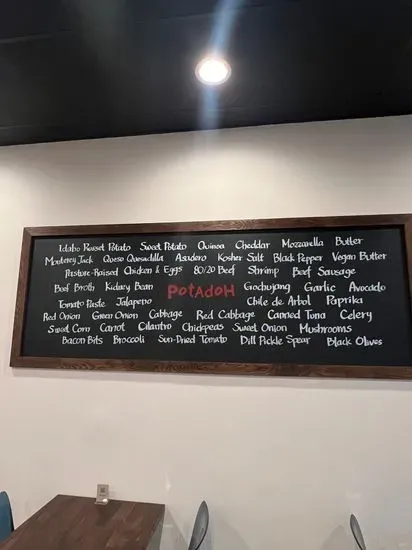 Idaho Russet Potato Sweet Potato Quinoa Cheddar Mozzarella Butter
Monterey Jack Queso Quesadilla Asadero Kosher Salt Black Pepper Vegan Butter
Pasture-Raised Chicken & Eggs 80/20 Beef Shrimp Beef Sausage
Beef Broth Kidney Bean PotAdoH Gochujang Garlic Avocado
Tomato Paste Jalapeno Chile de Arbol Paprika
Red Onion Green Onion Cabbage Red Cabbage Canned Tuna Celery
Sweet Corn Carrot Cilantro Chickpeas Sweet Onion Mushrooms
Bacon Bits Broccoli Sun-Dried Tomato Dill Pickle Spear Black Olives